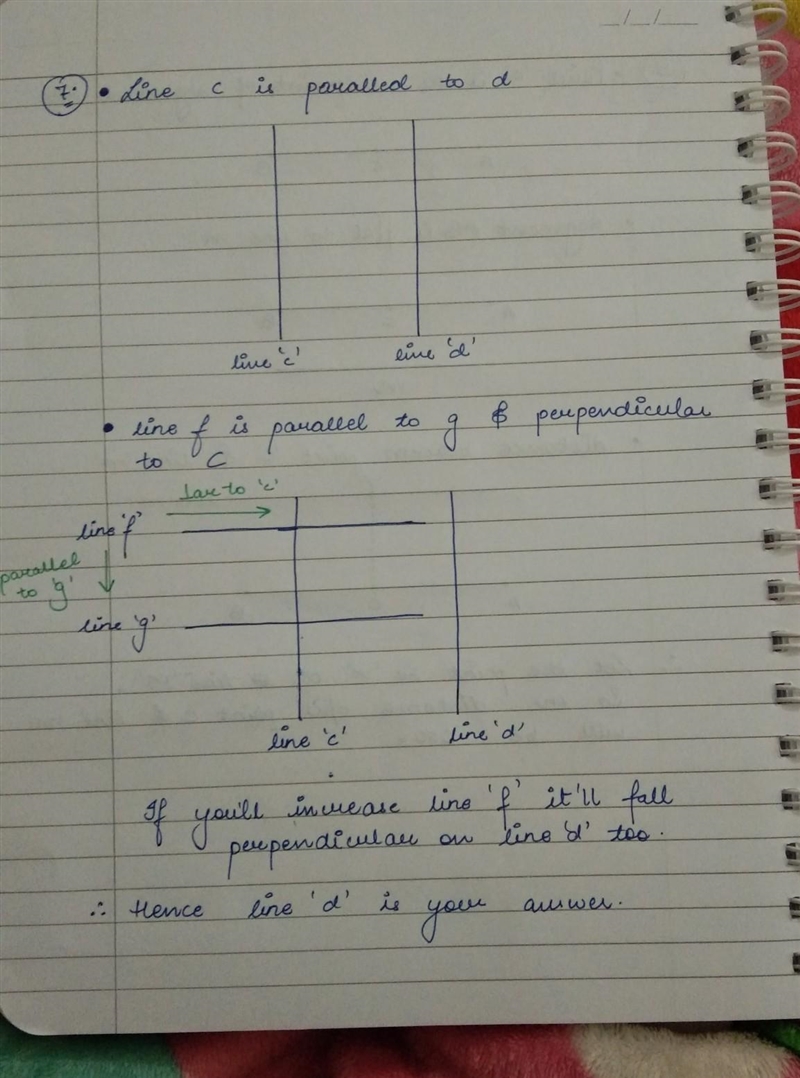 __/__/____
7. • Line c is paralled to d
line 'c' line 'd'
• line f is parallel to g & perpendicular
to C
Lar to 'c'
line 'f'
parallel
to 'g'
line 'g'
line 'c' line 'd'
If you'll increase line 'f' it'll fall
perpendicular on line 'd' too.
∴ Hence line 'd' is your answer.